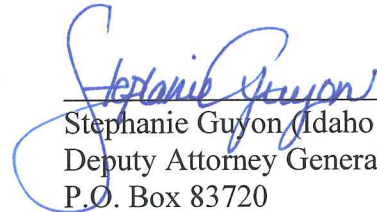 Stephanie Guyon
Stephanie Guyon (Idaho
Deputy Attorney Genera
P.O. Box 83720